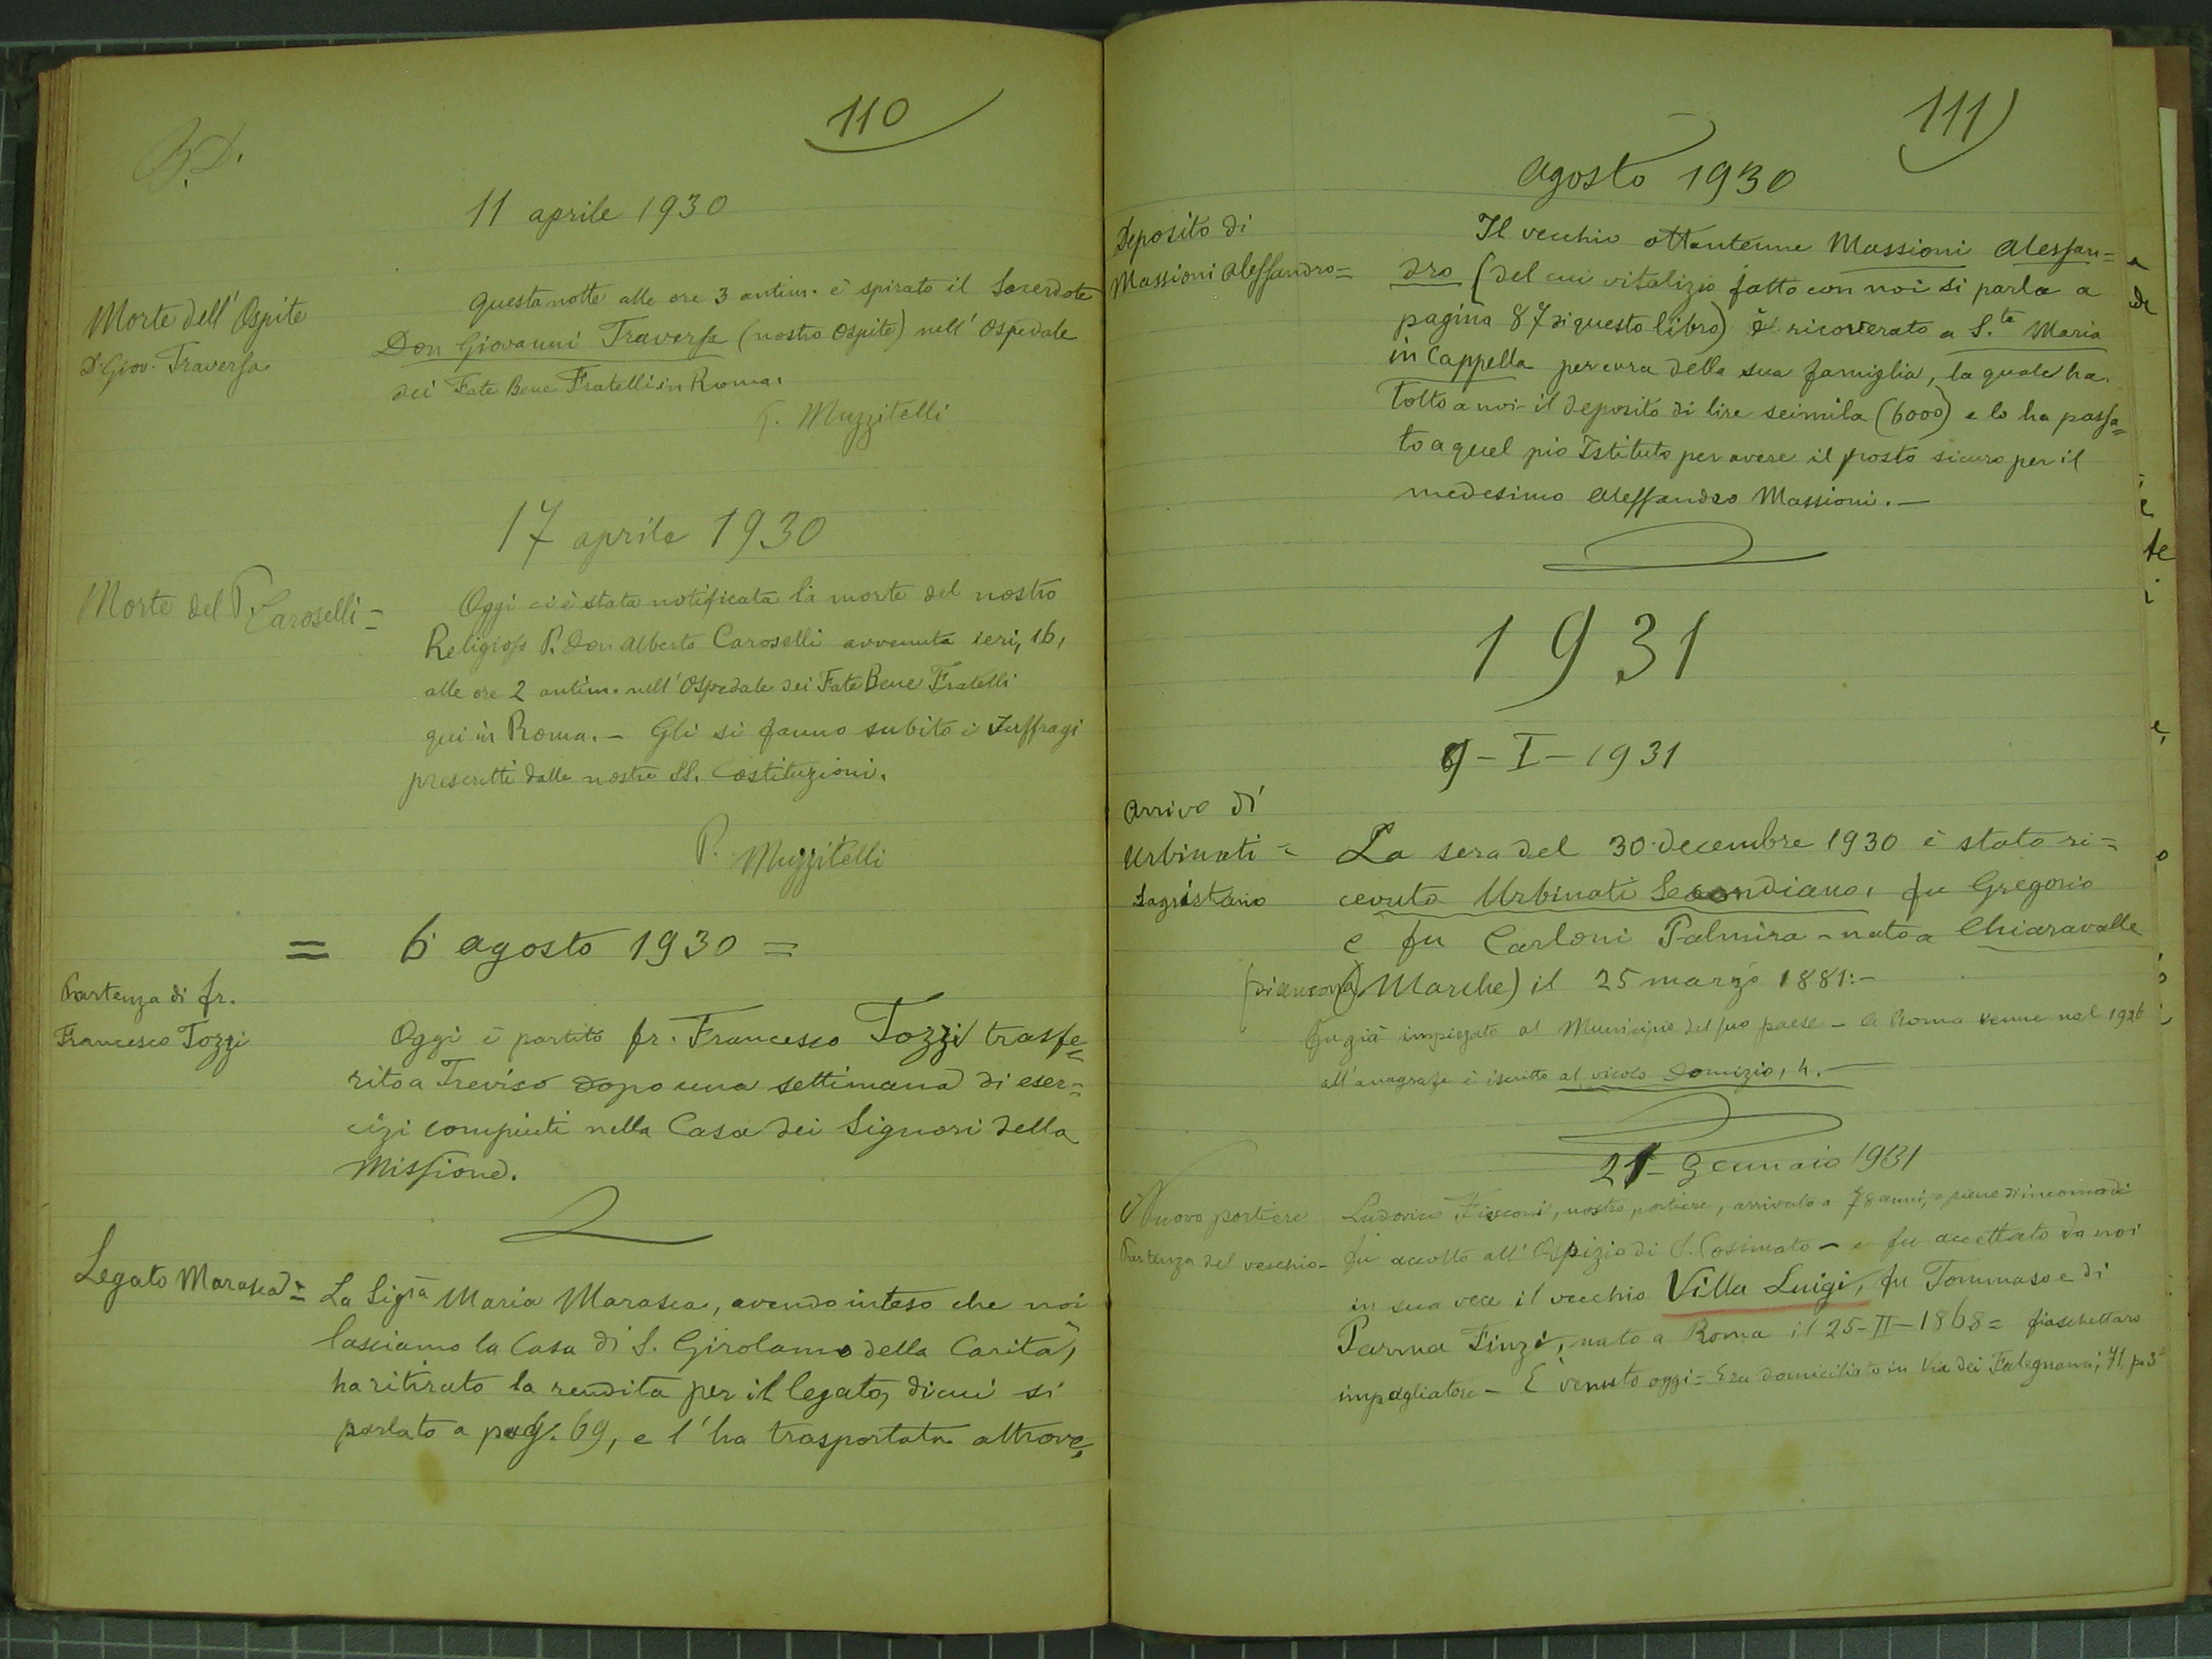 110
B.D.
11 aprile 1930
Morte dell' Ospite
D. Giov. Traversa
Questa notte alle ore 3 antim. è spirato il Sacerdote
Don Giovanni Traversa (nostro ospite) nell' ospedale
dei Fate Bene Fratelli in Roma.
P. Muzzitelli
17 aprile 1930
Morte del P. Caroselli =
Oggi ci è stata notificata la morte del nostro
Religioso P. Don Alberto Caroselli avvenuta ieri, 16,
alle ore 2 antim. nell' Ospedale dei Fate Bene Fratelli
qui in Roma. - Gli si fanno subito i suffragi
prescritti dalle nostre SS. Costituzioni.
P. Muzzitelli
= 6 agosto 1930 =
Partenza di fr.
Francesco Tozzi
Oggi è partito fr. Francesco Tozzi trasfe=
rito a Treviso dopo una settimana di eser=
cizi compiuti nella Casa dei Signori della
Missione.
Legato Marasca =
La Sigra Maria Marasca, avendo inteso che noi
lasciamo la Casa di S. Girolamo della Carità,
ha ritirato la rendita per il legato, di cui si
parlato a pag. 69, e l'ha trasportata altrove,
111
agosto 1930
Deposito di
Massioni Alessandro =
Il vecchio ottantenne Massioni Alessan=
dro (del cui vitalizio fatto con noi si parla a
pagina 87 di questo libro) è ricoverato a S.te Maria
in Cappella per cura della sua famiglia, la quale ha
tolto a noi il deposito di lire seimila (6000) e lo ha passa=
to a quel pio Istituto per avere il posto sicuro per il
medesimo Alessandro Massioni. -
1931
9 - I - 1931
Arrivo di
Urbinati =
Sagristano
La sera del 30 decembre 1930 è stato ri=
cevuto Urbinati Secondiano, fu Gregorio
e fu Carloni Palmira - nato a Chiaravalle
(di Ancona) Marche) il 25 marzo 1881: -
Fu già impiegato al Municipio del suo paese - a Roma venne nel 1926
all'anagrafe è iscritto al vicolo Domizio, 4. -
21 - Gennaio 1931
Nuovo portiere
Partenza del vecchio -
Ludovico, nostro portiere, arrivato a 78 anni, e pieno di incomodi
fu accolto all' Ospizio di S. Cosimato - e fu accettato da noi
in sua vece il vecchio Villa Luigi, fu Tommaso e di
Parma Finzi, nato a Roma il 25 - II - 1868 = fiaschettaro
impagliatore - È venuto oggi = Era domiciliato in Via dei Falegnami, 71 p. 3°